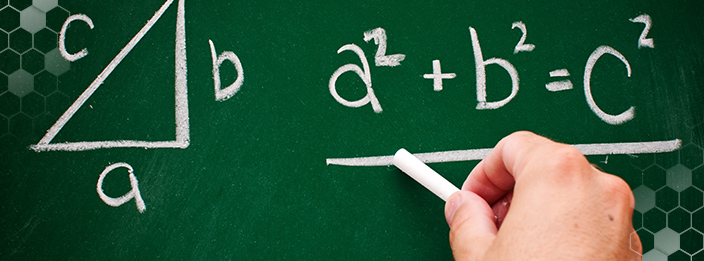 c
b
a
a² + b² = c²